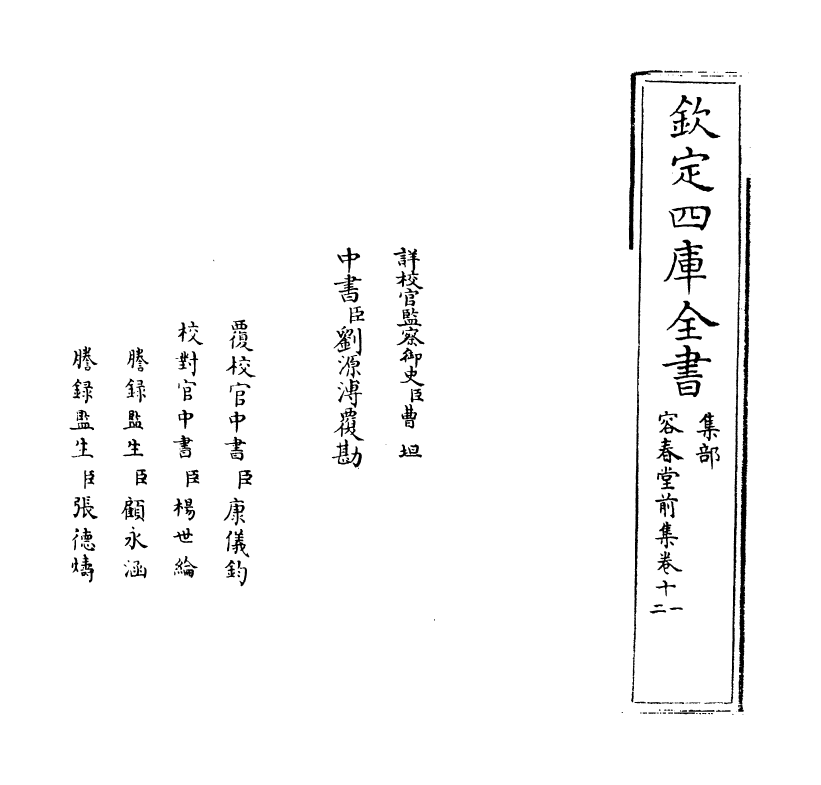 欽定四庫全書
集部
容春堂前集卷十一
二
詳校官監察御史臣曹坦
中書臣劉源溥覆勘
覆校官中書臣康儀鈞
校對官中書臣楊世綸
謄録監生臣顧永涵
謄録監生臣張德燽